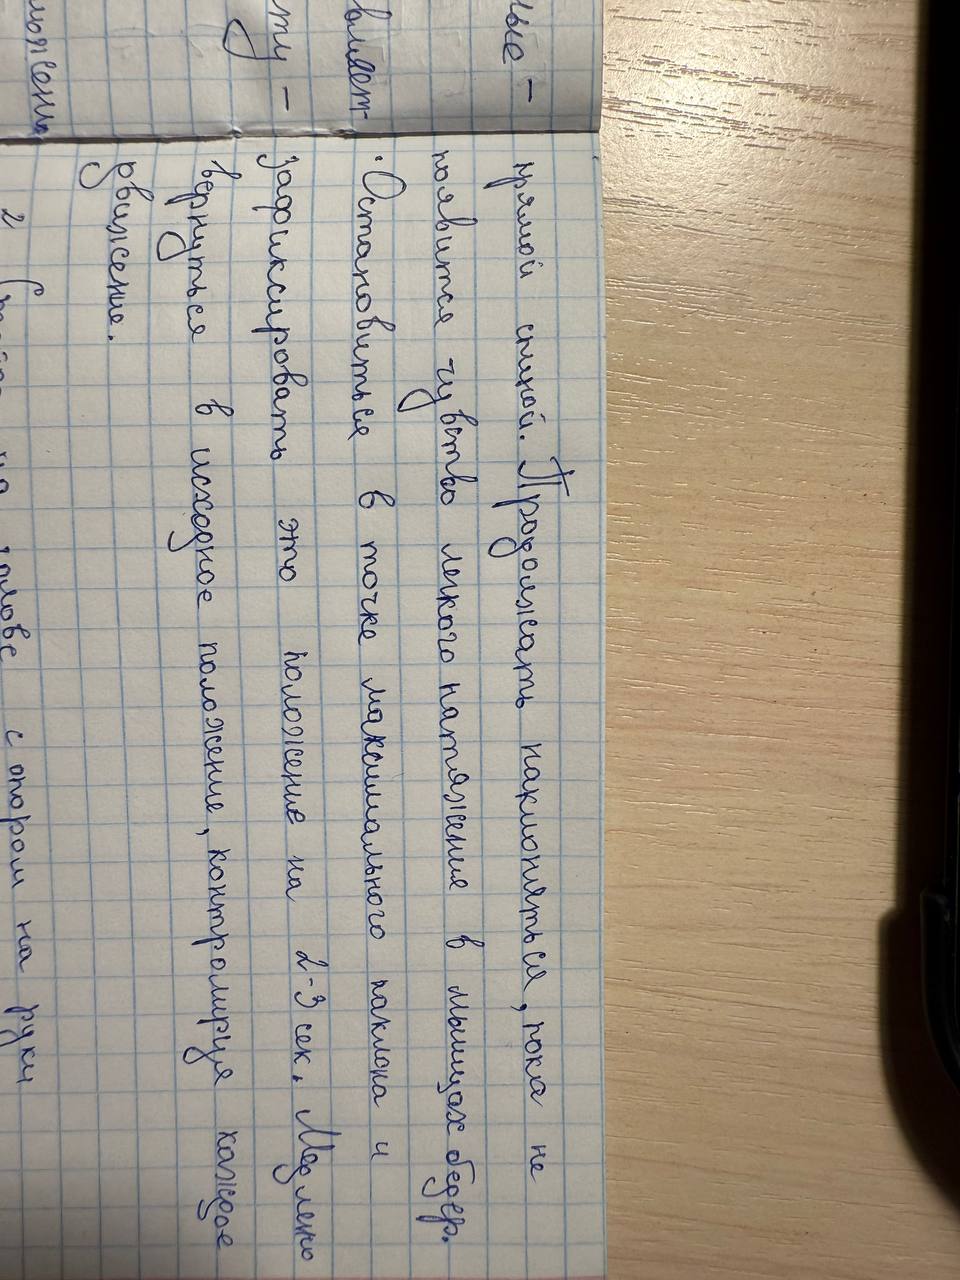 ные -
прямой спиной. Продолжать наклоняться, пока не
появится чувство легкого натяжение в мышцах бедер.
· Остановиться в точке максимального наклона и
зафиксировать это положение на 2-3 сек. Медлено
вернуться в исходное положение, контролируя каждое
движение.
2 на голове с опорой на руки